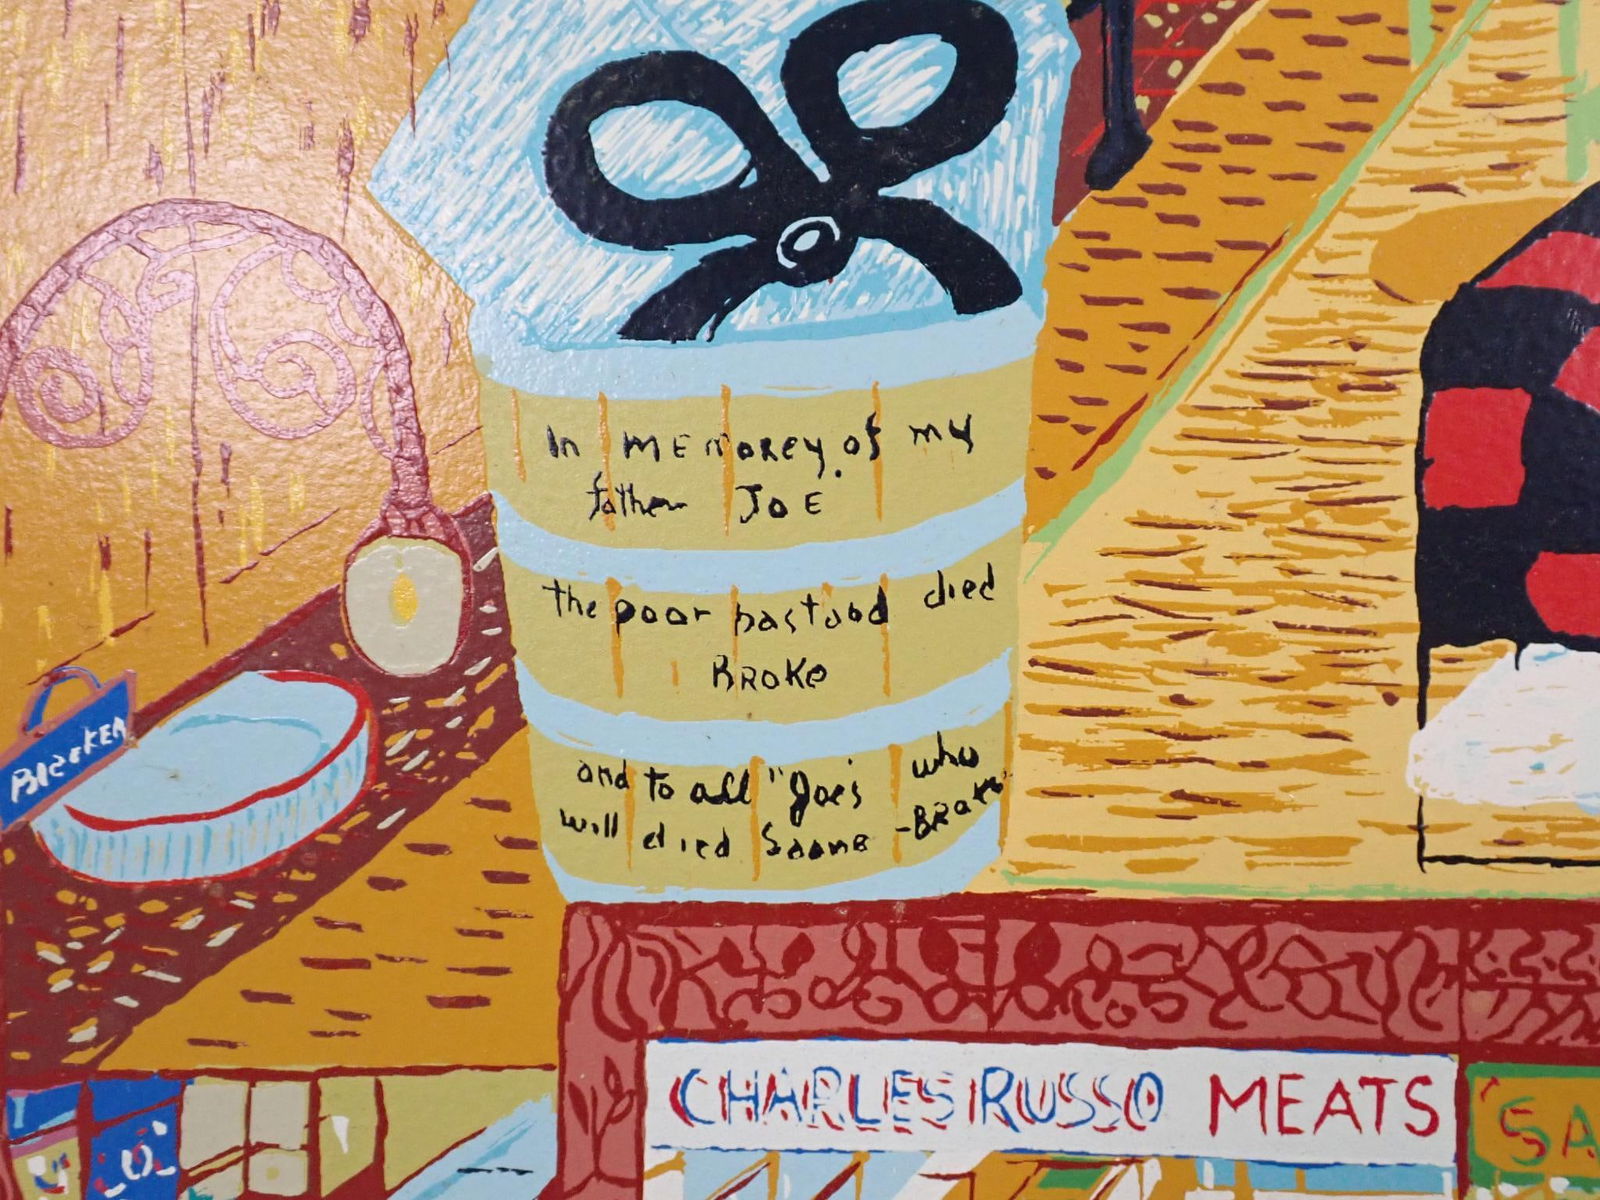 In MEMOREY. of my
father JOE
the poor bastaod died
BROKE
and to all "Joe's who
will died Saame - BROKE
BleeKER
CHARLES RUSSO MEATS
SA